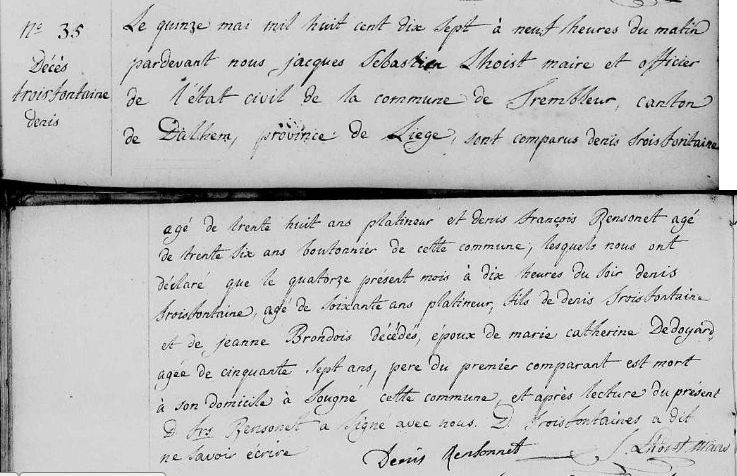 N° 35
Décès
troisfontaine
denis
Le quinze mai mil huit cent dix sept à neuf heures du matin
pardevant nous jacques Sébastien Lhoist maire et officier
de l'état civil de la commune de Trembleur, canton
de Dalhem, province de Liege, sont comparus denis troisfontaine
agé de trente huit ans platineur et denis françois Rensonet agé
de trente six ans boutonnier de cette commune, lesquels nous ont
déclaré que le quatorze présent mois à dix heures du soir denis
troisfontaine, agé de soixante ans platineur, fils de denis troisfontaine
et de jeanne Brondois décédés, époux de marie catherine Dedoyard
agée de cinquante sept ans, pere du premier comparant est mort
à son domicile à Sougné cette commune, et après lecture du présent
D. frs Rensonet a signé avec nous. D. troisfontaines a dit
ne savoir écrire
Denis Rensonnet
J. Lhoist maire